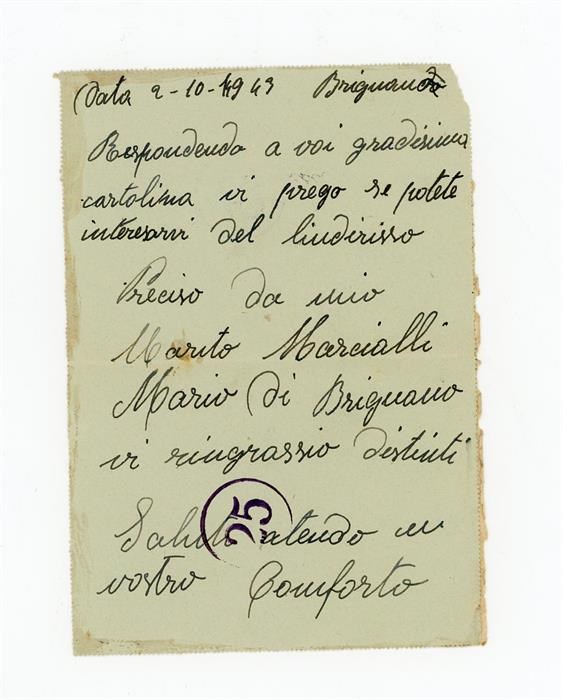 Data 2-10-1943 Brignano
Respondendo a voi gradisima
cartolina vi prego se potete
interesarvi del lindirisso
Preciso da mio
Marito Marcialli
Mario di Brignano
vi ringrassio distinti
Saluti atendo un
vostro Comforto
25